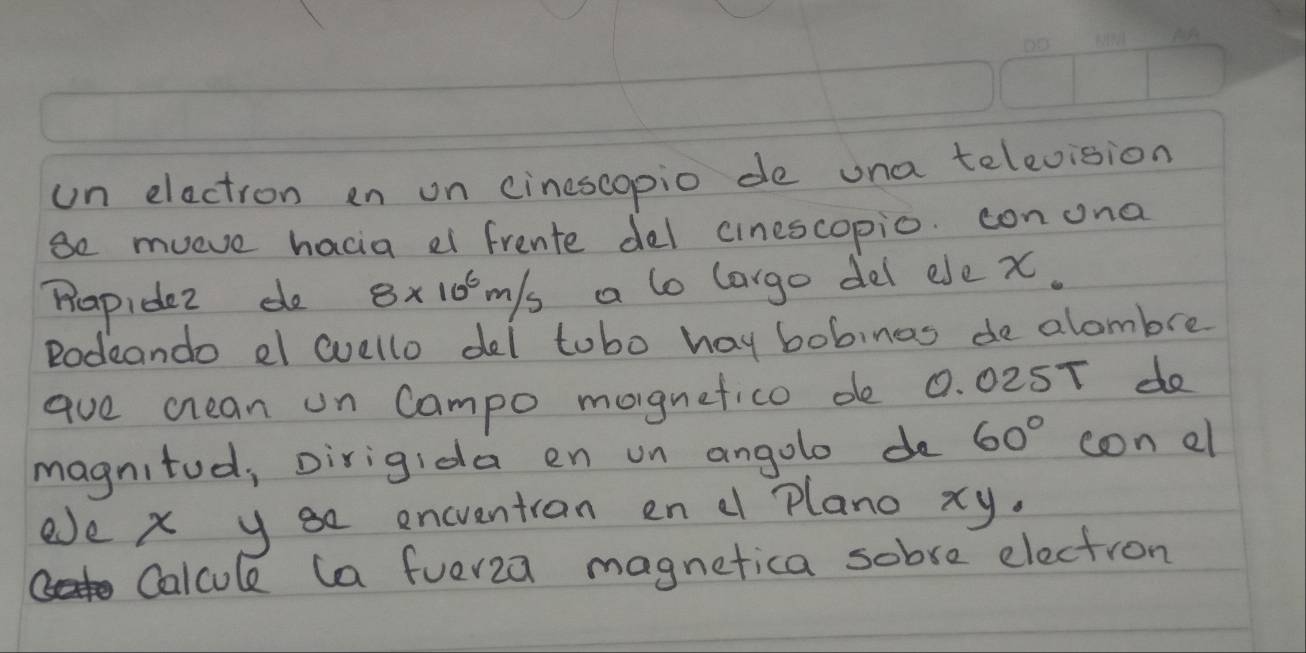 DD MM AA
un electron en un cinescopio de una television
se mueve hacia el frente del cinescopio. con una
Rapidez de 8x10⁶ m/s a lo largo del eje x.
Rodeando el cuello del tubo hay bobinas de alambre
que crean un Campo magnetico de 0.025T de
magnitud, Dirigida en un angulo de 60° con el
eje x y se encuentran en el Plano xy.
Calcule la fuerza magnetica sobre electron